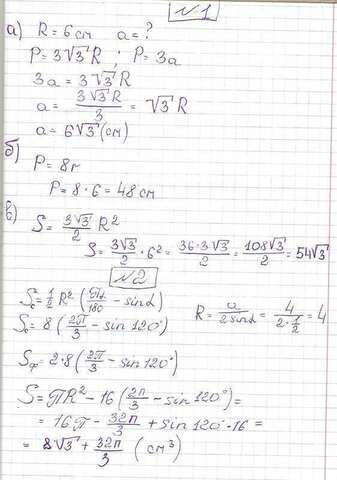 №1
а) R = 6 см a = ?
P = 3√3 R ; P = 3a
3a = 3√3 R
a = 3√3 R / 3 = √3 R
a = 6√3 (см)
б) P = 8r
P = 8·6 = 48 см
в) S = 3√3/2 R²
S = 3√3/2 · 6² = 36·3√3/2 = 108√3/2 = 54√3
№2
Sc = 1/2 R² (πα/180 − sinα) R = a/2sinα = 4/(2·1/2) = 4
Sc = 8 (2π/3 − sin 120°)
Sф = 2·8 (2π/3 − sin 120°)
S = πR² − 16 (2π/3 − sin 120°) =
= 16π − 32π/3 + sin 120·16 =
= 8√3 + 32π/3 (см³)